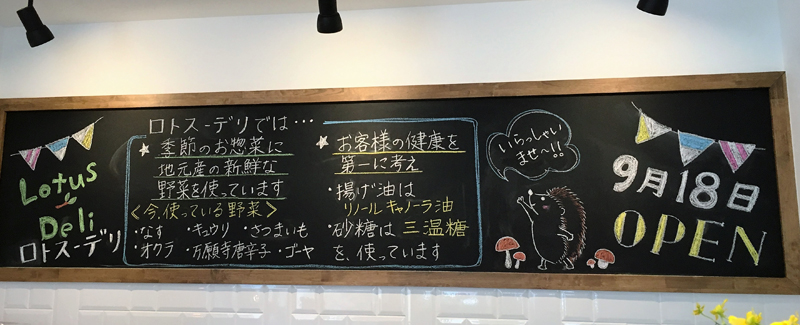 Lotus
Deli
ロトス-デリ
ロトス-デリでは…
★季節のお惣菜に
地元産の新鮮な
野菜を使っています
<今、使っている野菜>
・なす ・キュウリ ・さつまいも
・オクラ ・万願寺唐辛子・ゴーヤ
★お客様の健康を
第一に考え
・揚げ油は
リノールキャノーラ油
・砂糖は 三温糖
を、使っています
いらっしゃい
ませ〜!!
9月18日
OPEN